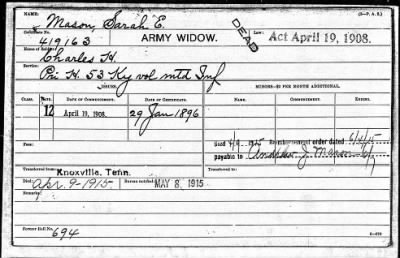 NAME: Mason, Sarah E. (3—P. A. S.)
Certificate No. 419163 ARMY WIDOW. DEAD Act April 19, 1908.
Name of Soldier: Charles H.
Service: Pri H. 53 Ky vol mtd Inf
ISSUED. MINORS—$2 PER MONTH ADDITIONAL.
CLASS. RATE. DATE OF COMMENCEMENT. DATE OF CERTIFICATE. DATE OF COMMENCEMENT.
12 April 19, 1908. 29 Jan 1896
Died 4/9 1915 Reimbursement order dated
payable to Andrew J. Mason
Fees:
Transferred from: Knoxville, Tenn. Transferred to:
Died: Apr. 9-1915 Bureau notified: MAY 8, 1915
Remarks:
Former Roll No. 694